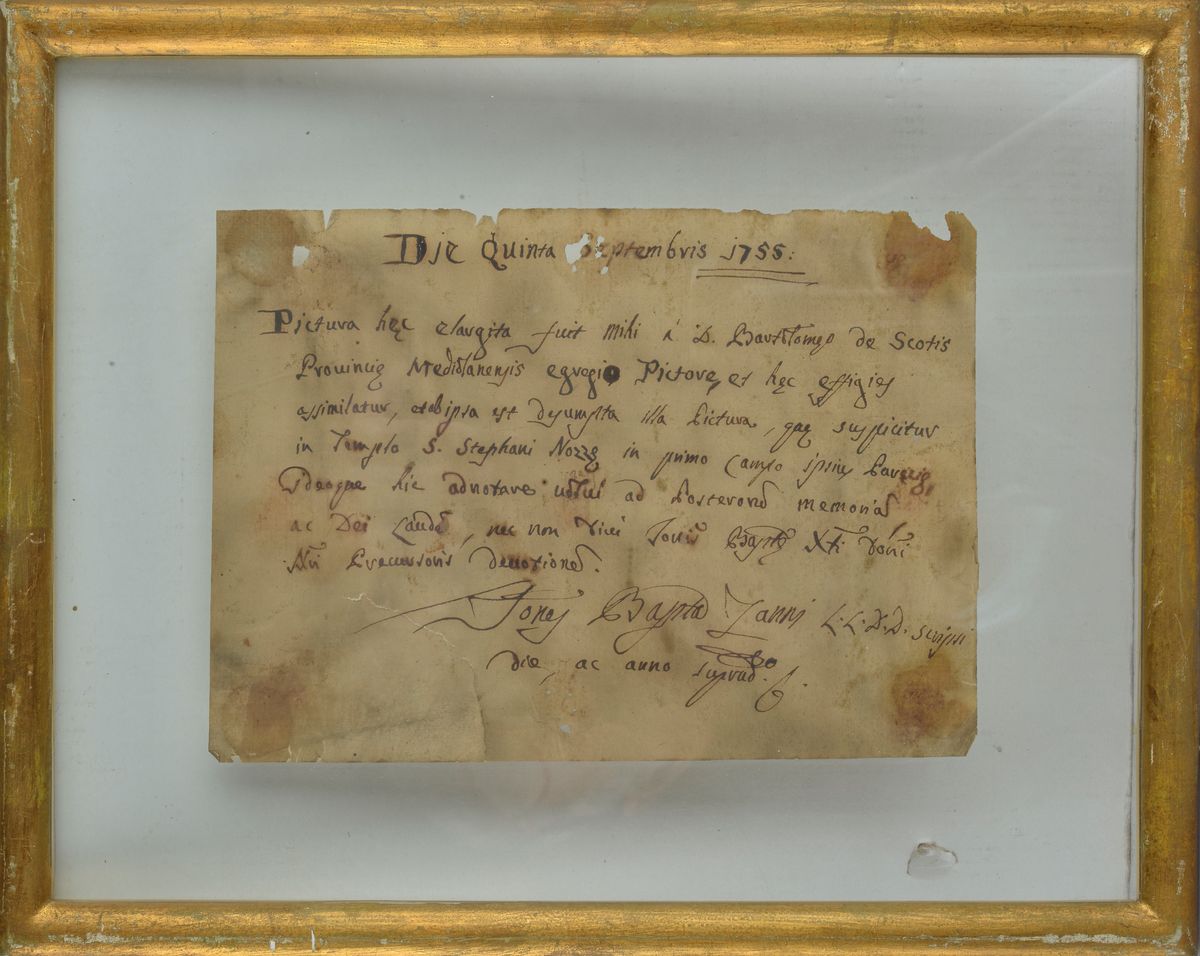 Die Quinta Septembris 1755:
Pictura hęc elargita fuit mihi á D. Bartolomęo de Scotis
Provincię Mediolanensis egregio Pictore, et hęc effigies
assimilatur, et ab ipsa est desumpta illa Pictura, quę suspicitur
in Templo S. Stephani Nozzę in primo campo ipsius
Ideoque hic adnotare ad Posterorum memoriam
ac Dei Laudem, nec non Joñis Baptę Xti Dõni
Nri Precursoris devotionem.
Jones Bapta Zanni L.L.D.D. scripsi
die, ac anno suprado.